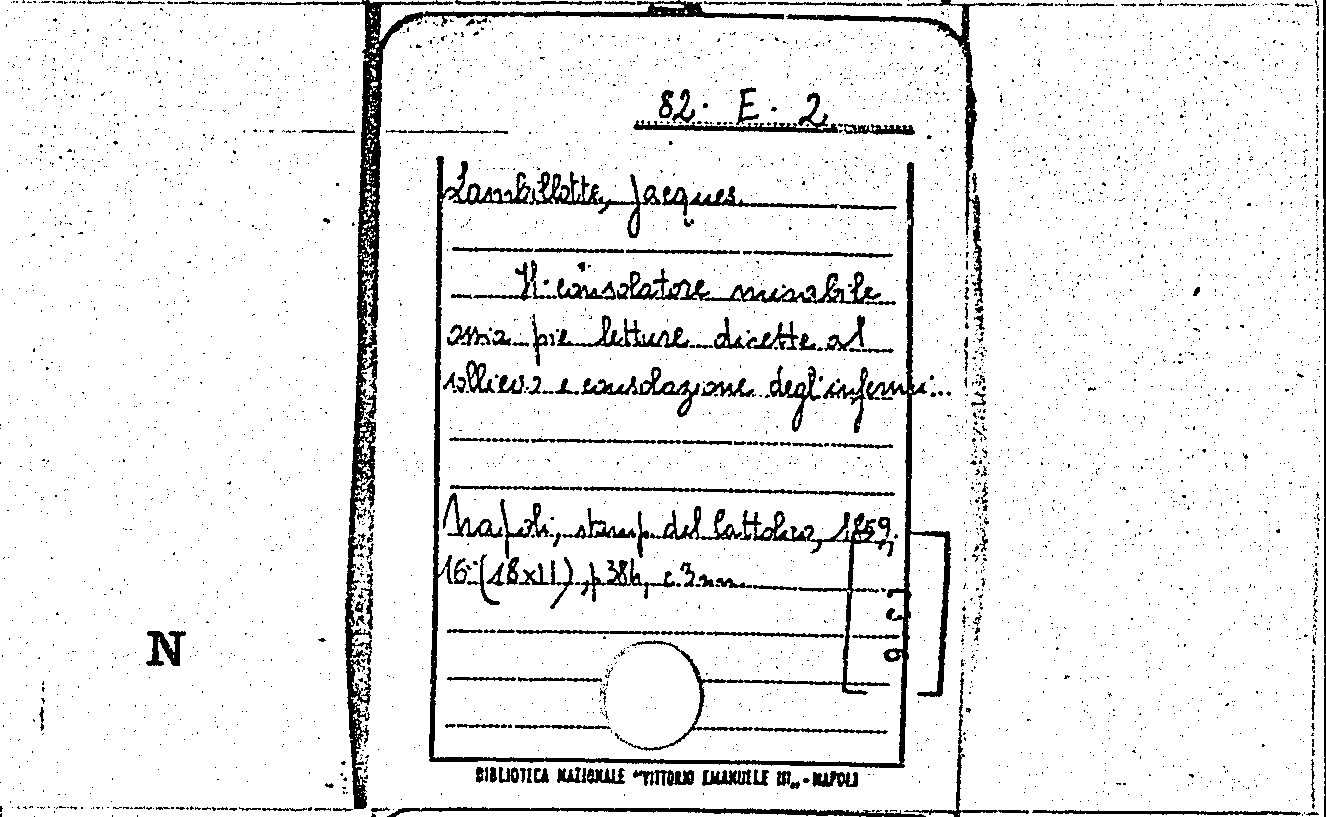 82. E. 2
Lambillotte, Jacques.
Il consolatore mirabile
ossia pie letture dirette al
sollievo e consolazione degl'infermi...
Napoli, stamp. del Cattolico, 1859,
16° (18x11), p. 386, c. 3 nn.
N
BIBLIOTECA NAZIONALE "VITTORIO EMANUELE III„ - NAPOLI